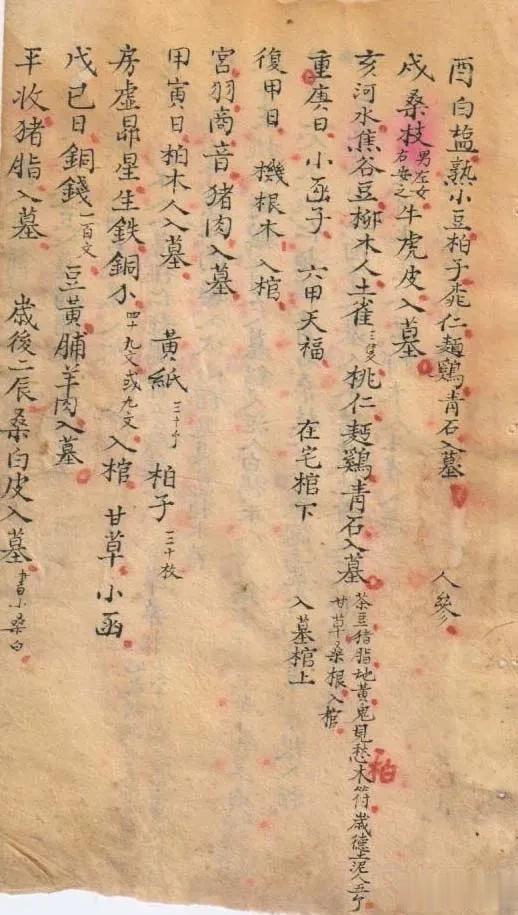 酉白盐熟小豆柏子桃仁麵鷄青石入墓
戍桑枝男左女右安之牛虎皮入墓 人參
亥河水焦谷豆柳木人土雀三隻桃仁麵鷄青石入墓 茶豆猪脂地黃鬼見愁木符歲德土泥人五个甘草桑根入棺
柏
重庚日小函子 六甲天福 在宅棺下 入墓棺上
復甲日 機根木入棺
宮羽商音猪肉入墓
甲寅日柏木人入墓 黃紙三十个 柏子三十枚
房虛昴星生鉄銅小四十九文或九文入棺 甘草小函
戊己日銅錢一百文豆黃脯羊肉入墓
平收猪脂入墓 歲後二辰桑白皮入墓書小桑白